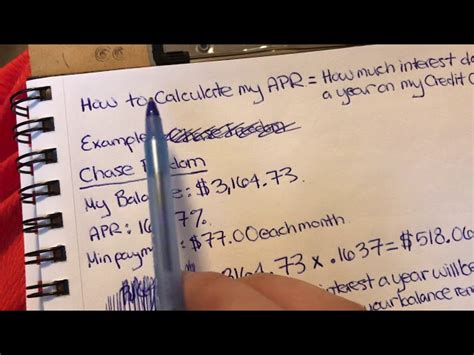 How to Calculate my APR = How much interest
a year on my Credit
Example:
Chase
My Balance: $3,164.73
APR: 16 7%
Min $77.00 each month
64.73 x .1637 = $518.0
interest a year will be
your balance